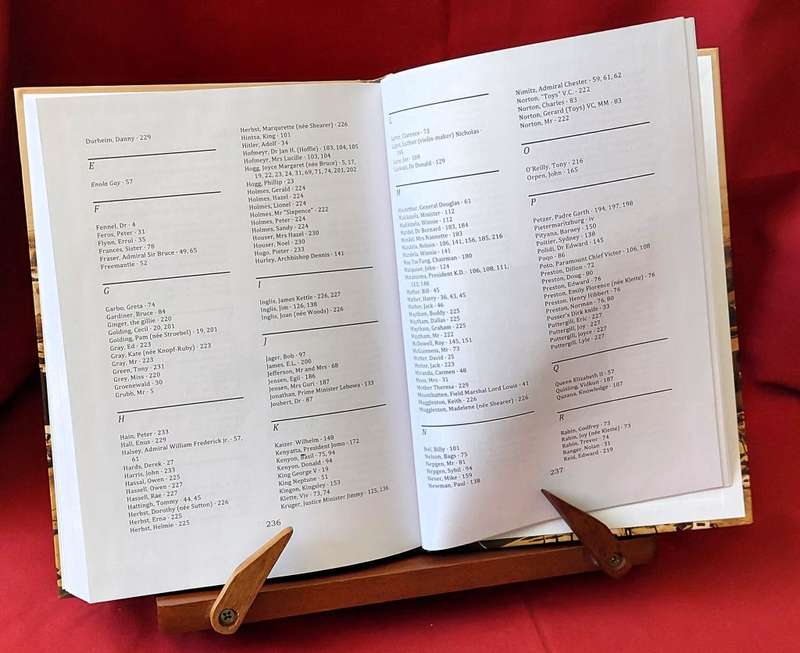 Durheim, Danny · 229
E
Enola Gay · 57
F
Fennel, Dr · 4
Feros, Peter · 31
Flynn, Errol · 35
Frances, Sister · 78
Fraser, Admiral Sir Bruce · 49, 65
Freemantle · 52
G
Garbo, Greta · 74
Gardiner, Bruce · 84
Ginger, the gillie · 220
Golding, Cecil · 20, 201
Golding, Pam (née Strowbel) · 19, 201
Gray, Ed · 223
Gray, Kate (née Knopf-Ruby) · 223
Gray, Mr · 223
Green, Tony · 231
Grey, Miss · 220
Groenewald · 30
Grubb, Mr · 5
H
Hain, Peter · 233
Hall, Enus · 229
Halsey, Admiral William Frederick jr. · 57,
61
Hards, Derek · 27
Harris, John · 233
Hassal, Owen · 225
Hassell, Owen · 227
Hassell, Rae · 227
Hattingh, Tommy · 44, 45
Herbst, Dorothy (née Sutton) · 226
Herbst, Erna · 225
Herbst, Helmie · 225
Herbst, Marqurette (née Shearer) · 226
Hintsa, King · 101
Hitler, Adolf · 34
Hofmeyr, Dr Jan H. (Hoffie) · 103, 104, 105
Hofmeyr, Mrs Lucille · 103, 104
Hogg, Joyce Margaret (née Bruce) · 5, 17,
19, 22, 23, 24, 31, 69, 71, 74, 201, 202
Hogg, Phillip · 23
Holmes, Gerald · 224
Holmes, Hazel · 224
Holmes, Lionel · 224
Holmes, Mr "Sixpence" · 222
Holmes, Peter · 224
Holmes, Sandy · 224
Houser, Mrs Hazel · 230
Houser, Noel · 230
Hugo, Pieter · 233
Hurley, Archbishop Dennis · 141
I
Inglis, James Kettle · 226, 227
Inglis, Jim · 126, 138
Inglis, Joan (née Woods) · 226
J
Jager, Bob · 97
James, E.L. · 200
Jefferson, Mr and Mrs · 68
Jensen, Egil · 186
Jensen, Mrs Guri · 187
Jonathan, Prime Minister Lebowa · 133
Joubert, Dr · 87
K
Kaizer Wilheim · 148
Kenyatta, President Jomo · 172
Kenyon, Basil · 75, 94
Kenyon, Donald · 94
King George V · 19
King Neptune · 51
Kingon, Kingsley · 153
Klette, Viv · 73, 74
Kruger, Justice Minister Jimmy · 125, 136
236
L
Clarence · 73
(violin-maker) Nicholas ·
Dr Donald · 129
M
MacArthur, General Douglas · 61
Minister · 112
Winnie · 112
Dr Bernard · 183, 184
Mrs Nannette · 183
Mandela, Nelson · 106, 141, 156, 185, 216
Mandela, Winnie · 141
Mao Tse Tung, Chairman · 180
John · 124
Matanzima, President K.D. · 106, 108, 111,
113, 186
Maher, Bill · 45
Maher, Harry · 36, 43, 45
Maher, Jack · 46
Maytham, Buddy · 225
Maytham, Dallas · 225
Maytham, Graham · 225
Maytham, Mr · 222
McDowell, Roy · 145, 151
Mr · 73
David · 25
Jack · 223
Miranda, Carmen · 48
Moon, Mrs · 31
Mother Theresa · 229
Mountbatten, Field Marshal Lord Louis · 41
Muggleston, Keith · 226
Muggleston, Madelene (née Shearer) · 226
N
Nel, Billy · 101
Nelson, Bags · 75
Nepgen, Mr · 81
Nepgen, Sybil · 94
Neser, Mike · 159
Newman, Paul · 138
Nimitz, Admiral Chester · 59, 61, 62
Norton, "Toys" V.C. · 222
Norton, Charles · 83
Norton, Gerard (Toys) VC, MM · 83
Norton, Mr · 222
O
O'Reilly, Tony · 216
Orpen, John · 165
P
Petzer, Padre Garth · 194, 197, 198
Pietermaritzburg · iv
Pityana, Barney · 150
Poitier, Sydney · 138
Polidi, Dr Edward · 145
Poqo · 86
Poto, Paramount Chief Victor · 106, 108
Preston, Dillon · 72
Preston, Doug · 80
Preston, Edward · 76
Preston, Emily Florence (née Klette) · 76
Preston, Henry Hibbert · 76
Preston, Norman · 76, 80
Pusser's Dirk knife · 33
Puttergill, Eric · 227
Puttergill, Joy · 227
Puttergill, Joyce · 227
Puttergill, Lyle · 227
Q
Queen Elizabeth II · 57
Quisling, Vidkun · 187
Quzana, Knowledge · 107
R
Rabin, Godfrey · 73
Rabin, Joy (née Klette) · 73
Rabin, Trevor · 74
Ranger, Nolan · 31
Reid, Edward · 219
237